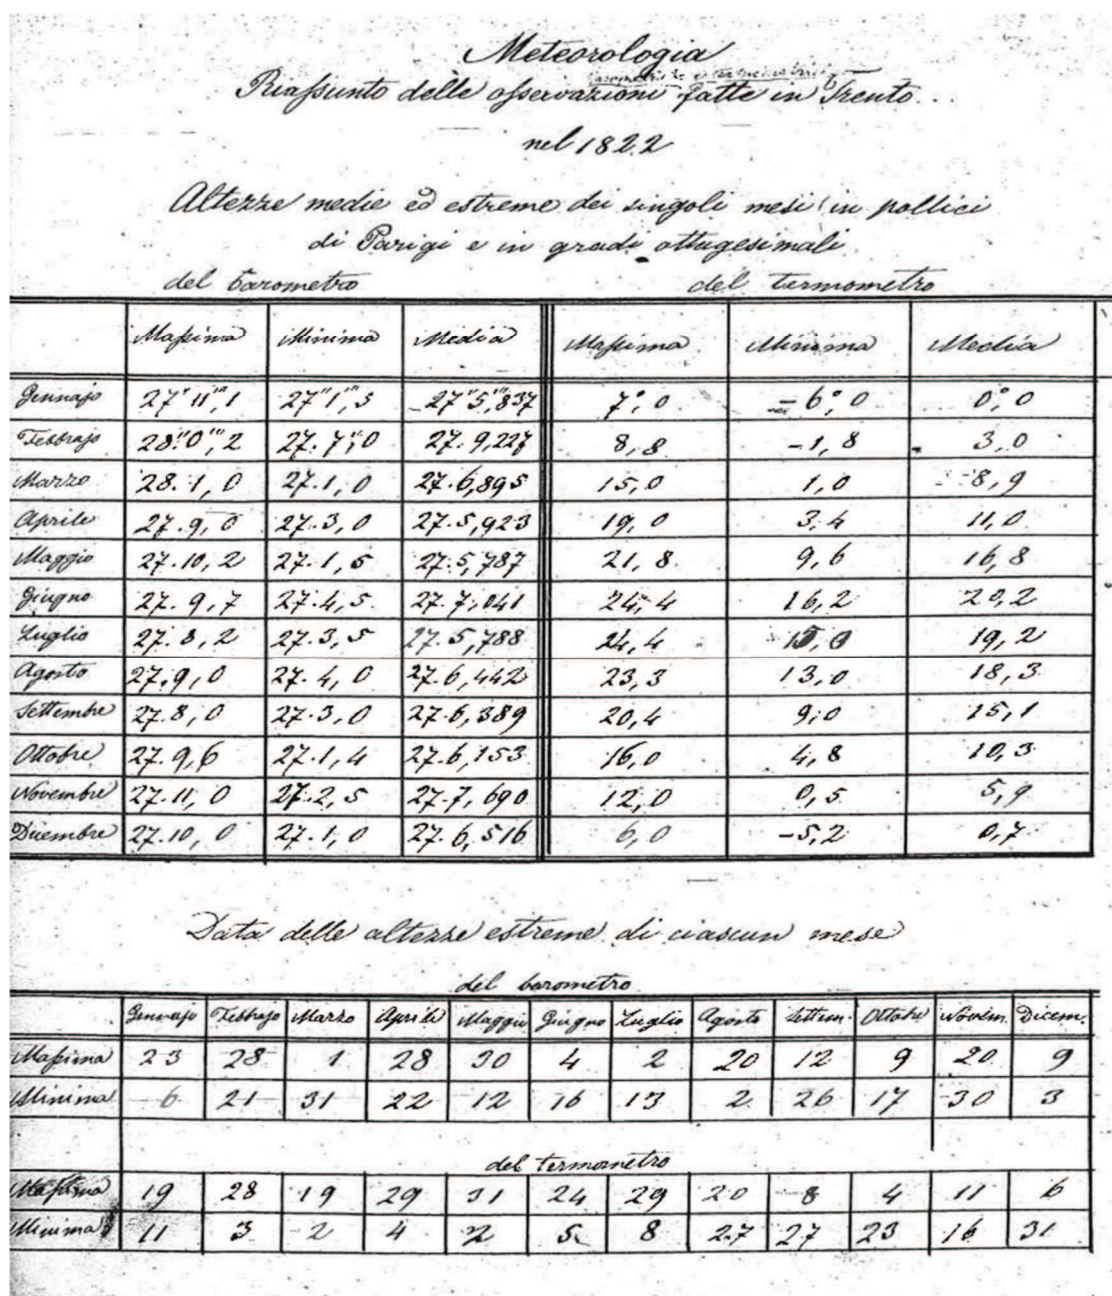 Meteorologia
Riassunto delle osservazioni fatte in Trento
nel 1822
Altezze medie ed estreme dei singoli mesi in pollici
di Parigi e in gradi ottugesimali
del barometro del termometro
Massima Minima Media Massima Minima Media
Gennajo 27" 11"',1 27" 1"',3 27" 5"',837 7°,0 -6°,0 0°,0
Febbrajo 28"0"',2 27.7"',0 27.9,227 8,8 -1,8 3,0
Marzo 28.1,0 27.1,0 27.6,895 15,0 1,0 8,9
Aprile 27.9,0 27.3,0 27.5,923 19,0 3,4 11,0
Maggio 27.10,2 27.1,5 27.5,787 21,8 9,6 16,8
Giugno 27.9,7 27.4,5 27.7,041 24,4 16,2 20,2
Luglio 27.8,2 27.3,5 27.5,788 24,4 19,2
Agosto 27.9,0 27.4,0 27.6,442 23,3 13,0 18,3
Settembre 27.8,0 27.3,0 27.6,389 20,4 9,0 15,1
Ottobre 27.9,6 27.1,4 27.6,153 16,0 4,8 10,3
Novembre 27.11,0 27.2,5 27.7,690 12,0 0,5 5,9
Dicembre 27.10,0 27.1,0 27.6,516 6,0 -5,2 0,7
Data delle altezze estreme di ciascun mese
del barometro
Gennajo Febbrajo Marzo Aprile Maggio Giugno Luglio Agosto Settem. Ottobre Novem. Dicem.
Massima 23 28 1 28 30 4 2 20 12 9 20 9
Minima 6 21 31 22 12 16 13 2 26 17 30 3
del termometro
Massima 19 28 19 29 31 24 29 20 8 4 11 6
Minima 11 3 2 4 2 5 8 27 27 23 16 31